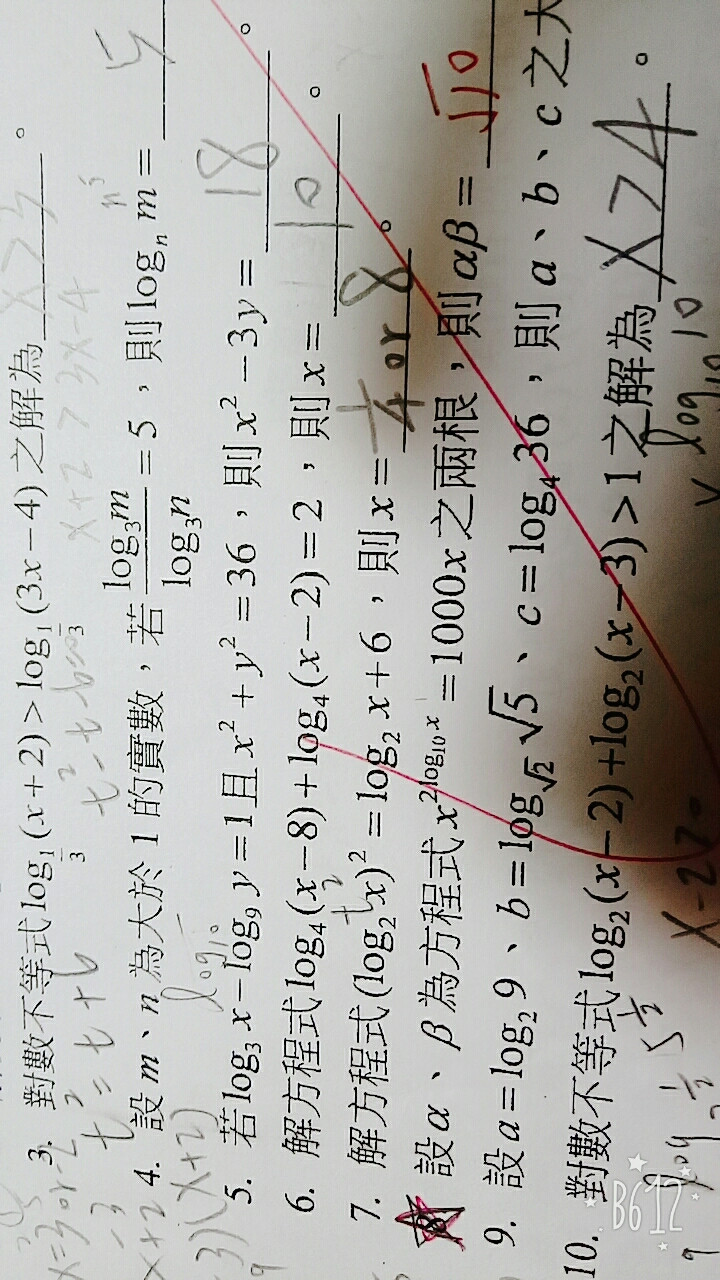 3. 對數不等式 log_{1/3}(x+2) > log_{1/3}(3x−4) 之解為 x>3。
x+2 > 3x−4
4. 設 m、n 為大於 1 的實數,若 log₃m / log₃n = 5,則 logₙ m = 5
5. 若 log₃ x − log₉ y = 1 且 x² + y² = 36,則 x² − 3y = 18。
6. 解方程式 log₄(x−8) + log₄(x−2) = 2,則 x = 10。
7. 解方程式 (log₂ x)² = log₂ x + 6,則 x = 1/4 or 8。
設 α、β 為方程式 x^{2log₁₀ x} = 1000x 之兩根,則 αβ = √10
9. 設 a = log₂ 9、b = log_{√2} √5、c = log₄ 36,則 a、b、c 之大
10. 對數不等式 log₂(x−2) + log₂(x−3) > 1 之解為 x>4。
B612